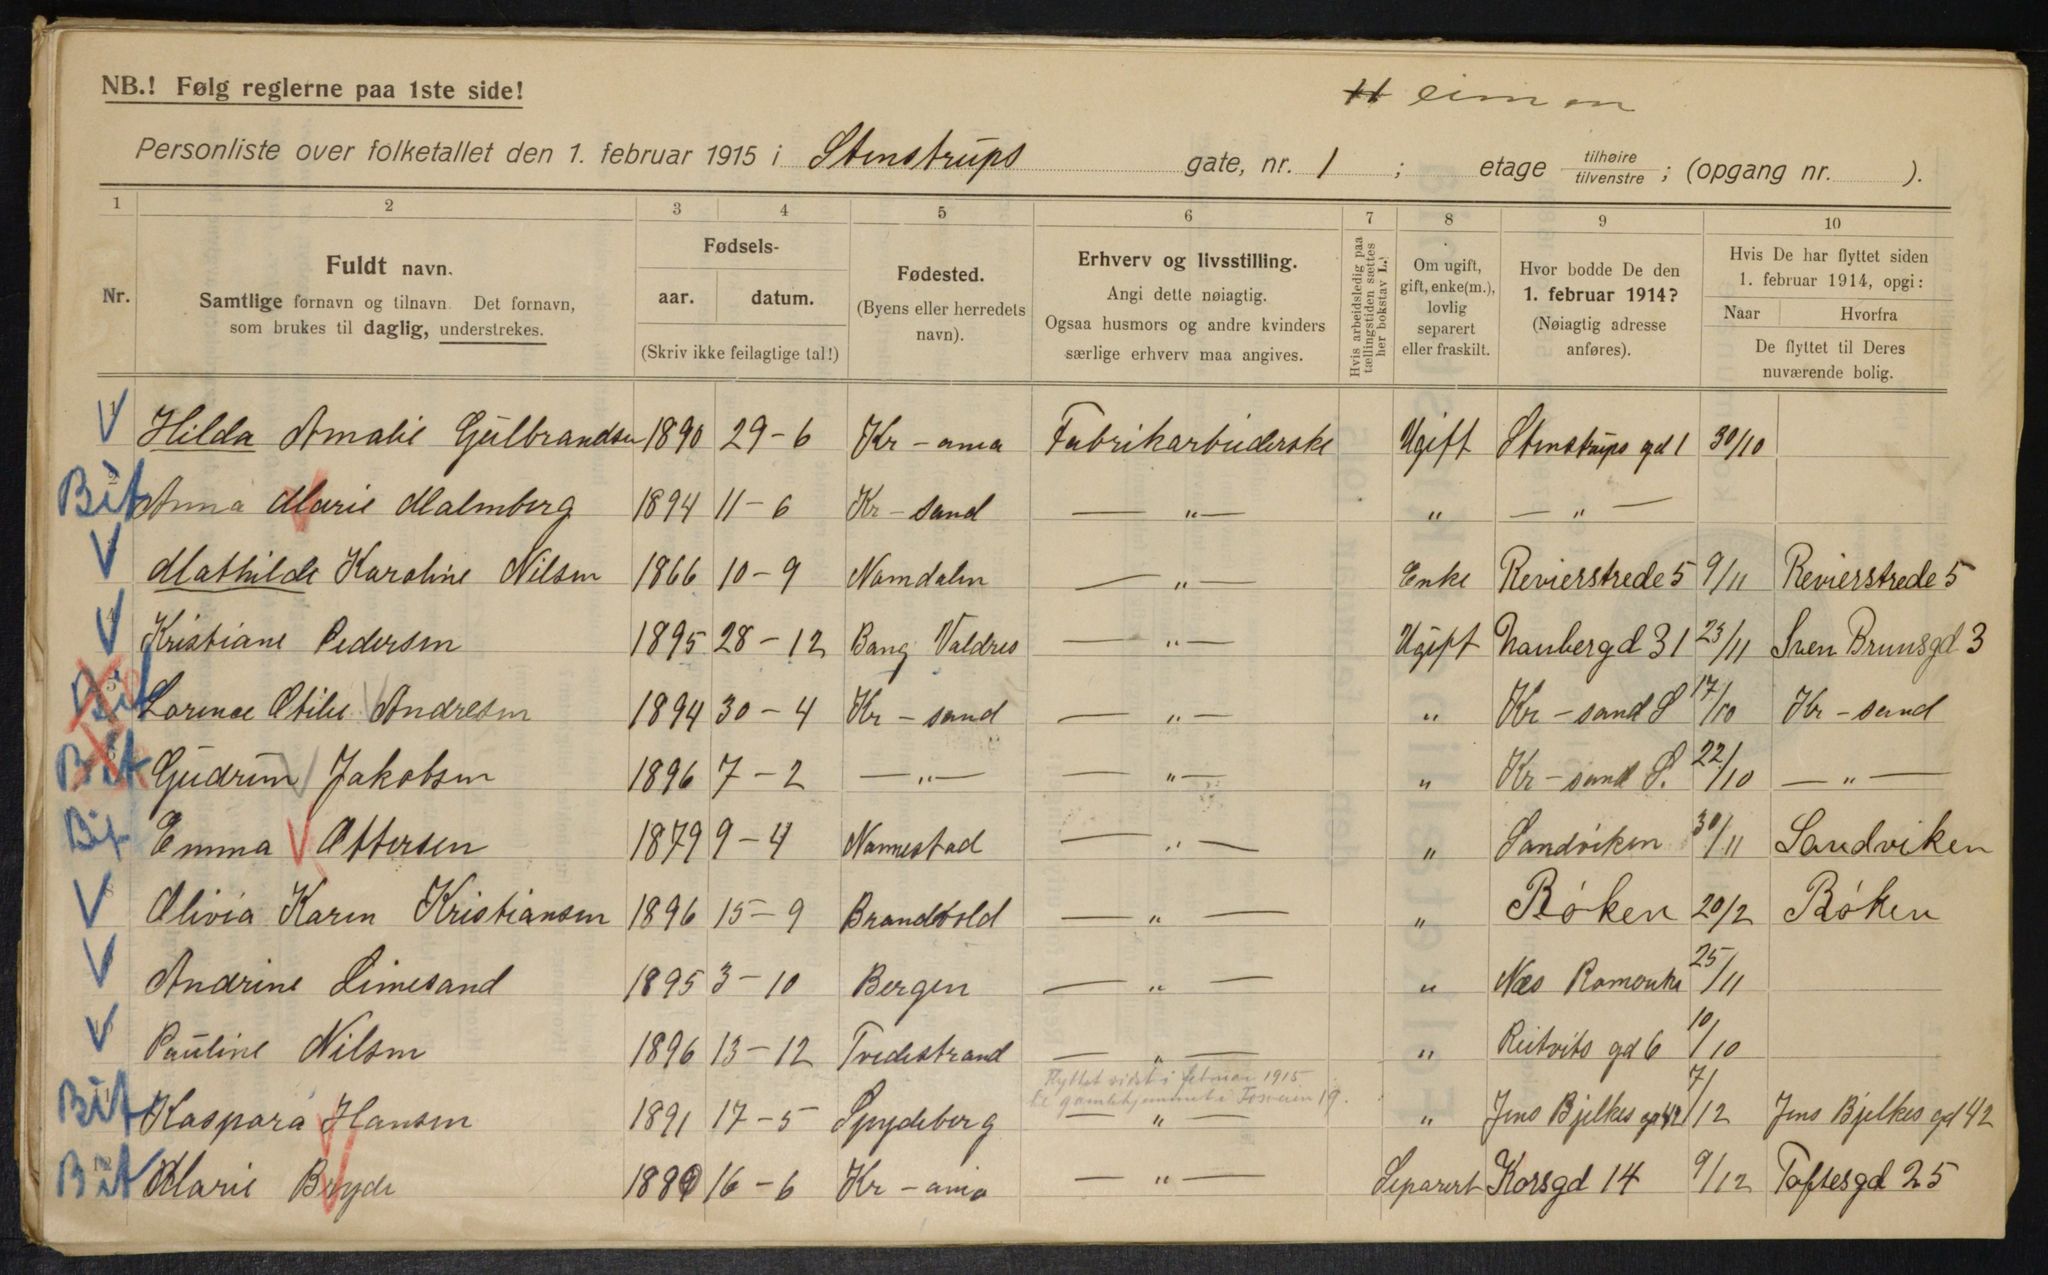 NB.! Følg reglerne paa 1ste side!
Heimen
Personliste over folketallet den 1. februar 1915 i Stenstrups gate, nr. 1 ; etage tilhøire tilvenstre ; (opgang nr. ).
1 2 3 4 5 6 7 8 9 10
Nr.
Fuldt navn.
Samtlige fornavn og tilnavn. Det fornavn,
som brukes til daglig, understrekes.
Fødsels-
aar. datum.
(Skriv ikke feilagtige tal!)
Fødested.
(Byens eller herredets
navn).
Erhverv og livsstilling.
Angi dette nøiagtig.
Ogsaa husmors og andre kvinders
særlige erhverv maa angives.
Hvis arbeidsledig paa
tællingstiden sættes
her bokstav L.
Om ugift,
gift, enke(m.),
lovlig
separert
eller fraskilt.
Hvor bodde De den
1. februar 1914?
(Nøiagtig adresse
anføres).
Hvis De har flyttet siden
1. februar 1914, opgi:
Naar Hvorfra
De flyttet til Deres
nuværende bolig.
Hilda Amalie Gulbrandsen 1890 29-6 Kr-ania Fabrikarbeiderske Ugift Stenstrups gd 1 30/10
Bit Anna Marie Malmberg 1894 11-6 Kr-sand — " — " — " —
Mathilde Karoline Nilsen 1866 10-9 Namdalen — " — Enke Revierstrede 5 9/11 Revierstrede 5
Kristiane Pedersen 1895 28-12 Bang Valdres — " — Ugift 31 23/11 Sven Brunsgd 3
Bit Otilie Andresen 1894 30-4 Kr-sand — " — " Kr-sand S 17/10 Kr-sand
Bit Gudrun Jakobsen 1896 7-2 — " — — " — " Kr-sand S. 22/10 — " —
Bit Emma Ottersen 1879 9-4 Nannestad — " — " Sandviken 30/11 Sandviken
Olivia Karen Kristiansen 1896 15-9 — " — " Røken 20/2 Røken
Andrine Limesand 1895 3-10 Bergen — " — " Næs Romerike 25/11
Pauline Nilsen 1896 13-12 Tvedestrand — " — " gd 6 10/10
Flyttet sidst i februar 1915
til gamlehjemmet i 19.
Bit Kaspara Hansen 1891 17-5 Spydeberg — " — " Jens Bjelkes gd 42 7/12 Jens Bjelkes gd 42
Bit Marie Bryde 16-6 Kr-ania — " — Separert Korsgd 14 9/12 Toftesgd 25